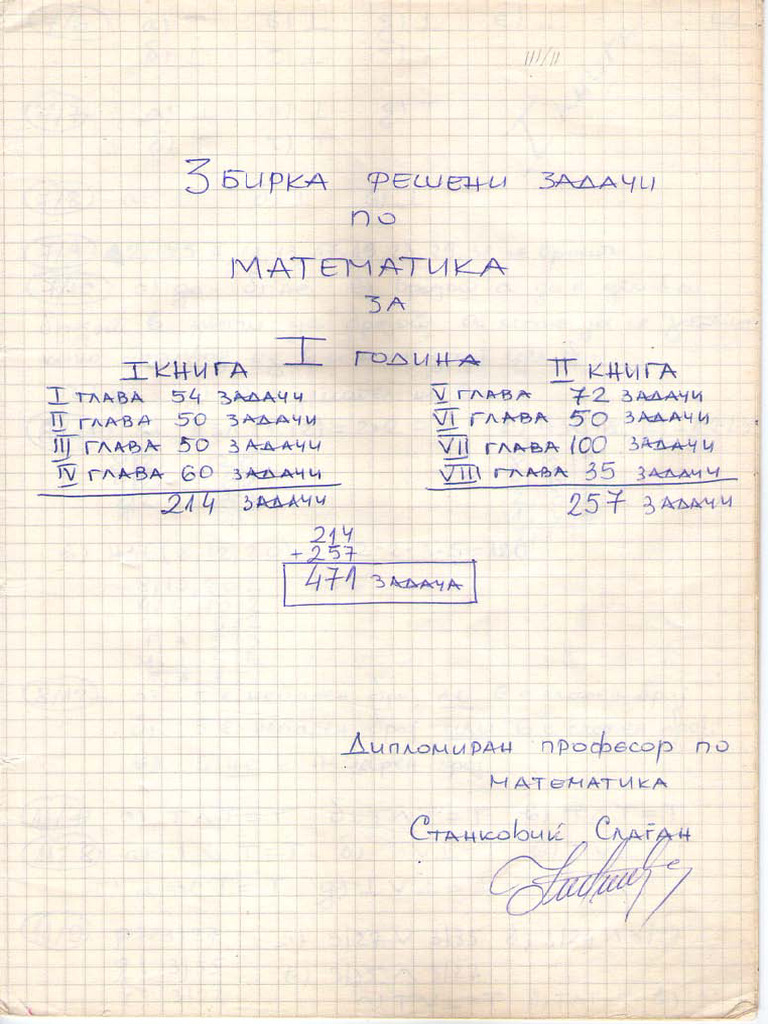 III/II
Збирка решени задачи
по
МАТЕМАТИКА
за
I година
I КНИГА
I ГЛАВА 54 ЗАДАЧИ
II ГЛАВА 50 ЗАДАЧИ
III ГЛАВА 50 ЗАДАЧИ
IV ГЛАВА 60 ЗАДАЧИ
214 ЗАДАЧИ
II КНИГА
V ГЛАВА 72 ЗАДАЧИ
VI ГЛАВА 50 ЗАДАЧИ
VII ГЛАВА 100 ЗАДАЧИ
VIII ГЛАВА 35 ЗАДАЧИ
257 ЗАДАЧИ
214
+257
471 ЗАДАЧА
Дипломиран професор по
математика
Станковиќ Слаѓан